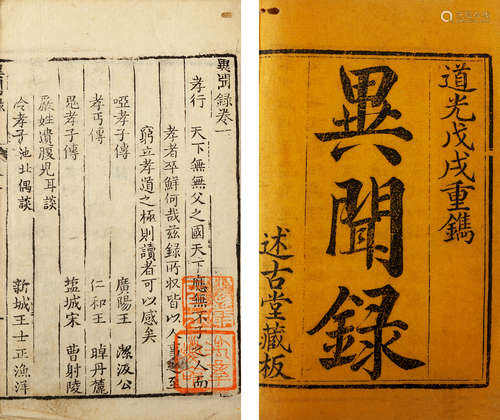 異聞錄卷一
孝行 天下無無父之國天下應無不子之人而
孝者卒鮮何哉茲録所収皆以人 至
窮立孝道之極則讀者可以感矣
啞孝子傳 廣陽王 潔汲公
孝丐傳 仁和王 晫丹麓
皂孝子傳 塩城宋 曹射陵
嚴姓遺腹兒耳談
冷孝子池北偶談 新城王士正漁洋
道光戊戌重鐫
異聞録
述古堂藏板